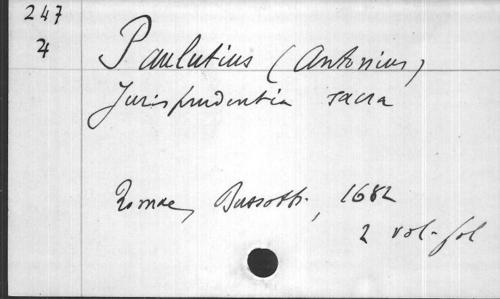 247
4
Paulutius (Antonius)
Jurisprudentia sacra
Romae, Bussotti, 1682
2 vol. fol